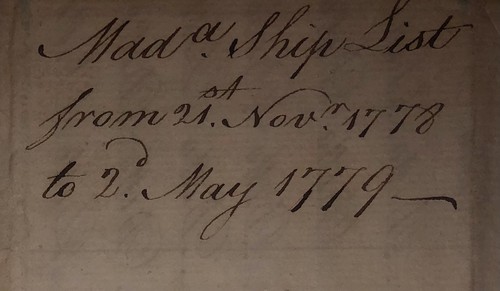 Mad.ª Ship List
from 21.st Nov.r 1778
to 2.d May 1779—